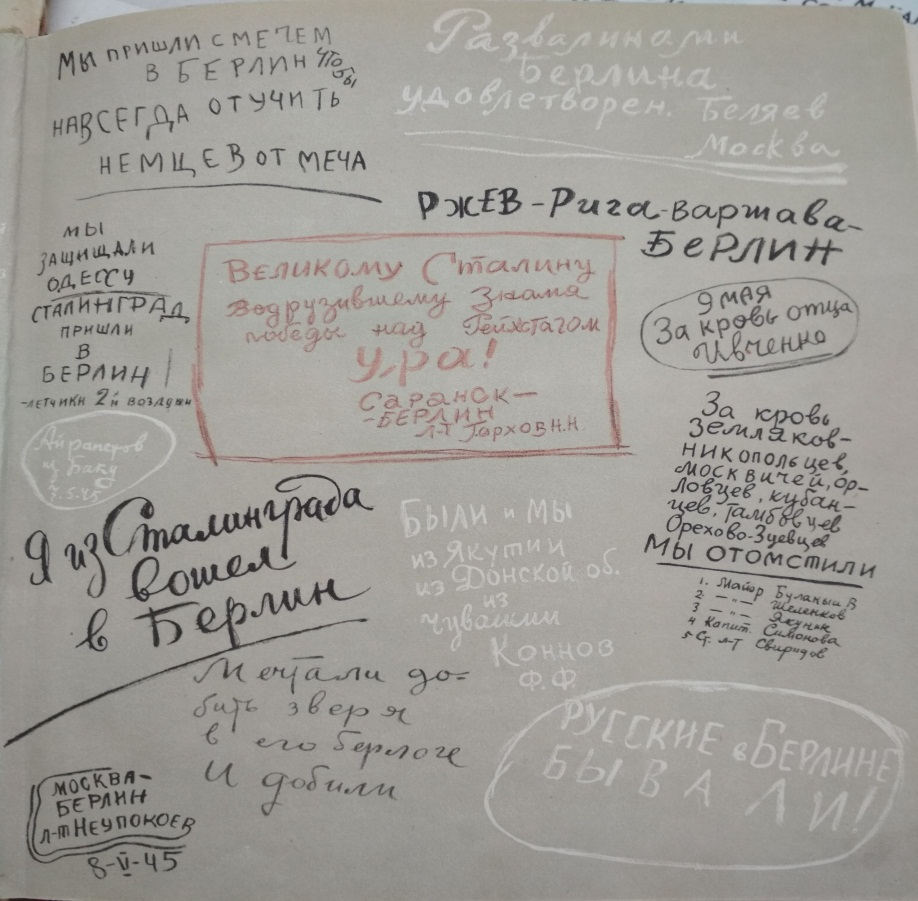 Мы пришли с мечем
в Берлин чтобы
навсегда отучить
немцев от меча
Развалинами
Берлина
удовлетворен. Беляев
Москва
Ржев-Рига-Варшава-
Берлин
Мы
защищали
Одессу
Сталинград,
пришли
в
Берлин
-летчики 2й воздушн
Великому Сталину
водрузившему Знамя
победы над Рейхстагом
Ура!
Саранск-
-Берлин
л-т Гархов Н.Н.
9 мая
За кровь отца
Ивченко
Айрапетов
из Баку
7.5.45
За кровь
земляков-
никопольцев,
москвичей, ор-
ловцев, кубан-
цев, тамбовцев
Орехово-Зуевцев
Мы отомстили
1. Майор Буланый В
2 — „ — Шеленков
3 — „ — Якунин
4 Капит. Симонова
5 Ст. л-т Свиридов
Я из Сталинграда
вошел
в Берлин
Были и мы
из Якутии
из Донской об.
из
Чувашии
Коннов
Ф.Ф.
Мечтали до-
бить зверя
в его берлоге
И добили
Русские в Берлине
бывали!
Москва-
Берлин
л-т Неупокоев
8-V-45